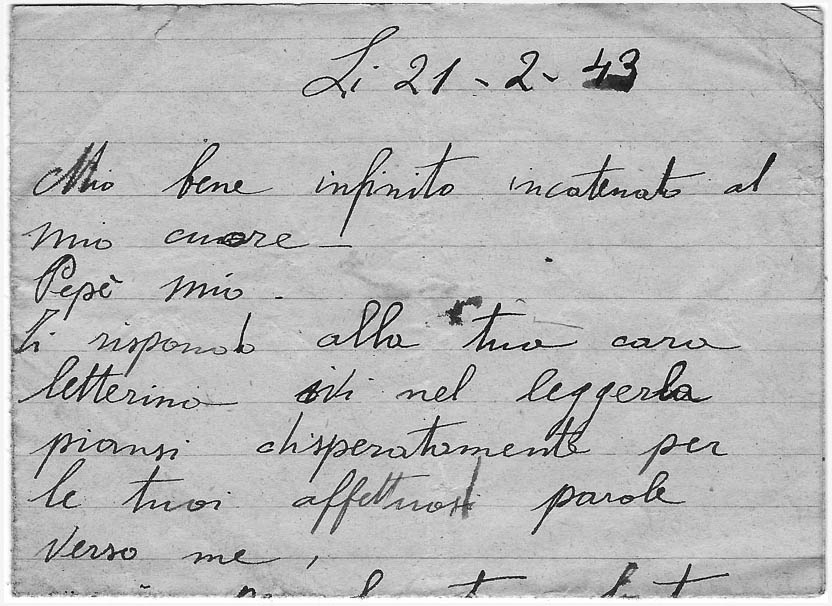 Li 21-2-43
Mio bene infinito incatenato al
mio cuore -
Pepè mio.
Ti rispondo alla tua cara
letterina ivi nel leggerla
piansi disperatamente per
le tuoi affettuosi parole
verso me,